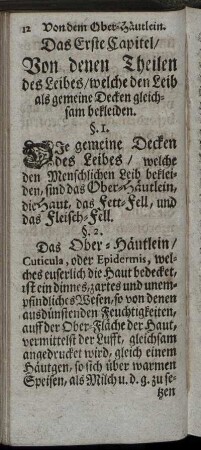 12 Von dem Ober-Häutlein.
Das Erste Capitel/
Von denen Theilen
des Leibes/welche den Leib
als gemeine Decken gleich-
sam bekleiden.
§. 1.
DIe gemeine Decken
des Leibes/ welche
den Menschlichen Leib beklei-
den, sind das Ober-Häutlein,
die Haut, das Fett-Fell, und
das Fleisch-Fell.
§. 2.
Das Ober-Häutlein/
Cuticula, oder Epidermis, wel-
ches euserlich die Haut bedecket,
ist ein dinnes, zartes und unem-
pfindliches Wesen, so von denen
ausdünstenden Feuchtigkeiten,
auff der Ober-Fläche der Haut,
vermittelst der Lufft, gleichsam
angedrucket wird, gleich einem
Häutgen, so sich über warmen
Speisen, als Milch u. d. g. zu se-
tzen